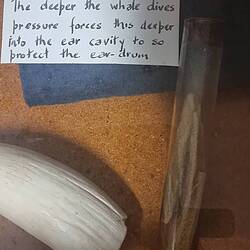 The deeper the whale dives
pressure forces this deeper
into the ear cavity to so
protect the ear-drum